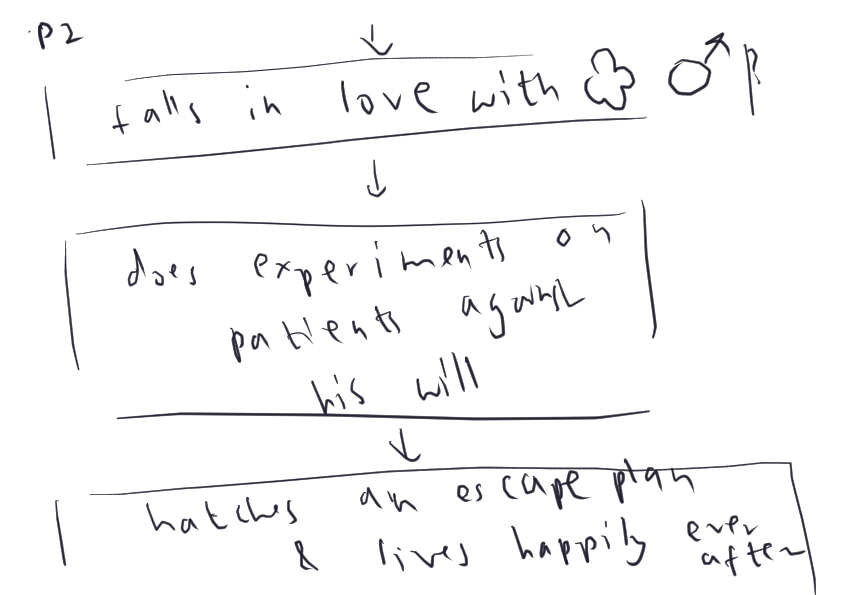 P2
falls in love with ♧ ♂ P
does experiments on
patients against
his will
hatches an escape plan
& lives happily ever
after